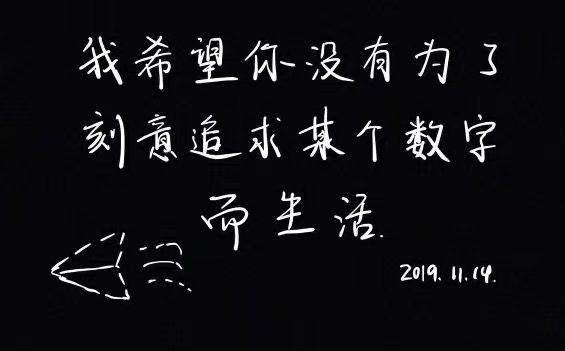 我希望你没有为了
刻意追求某个数字
而生活.
2019.11.14.